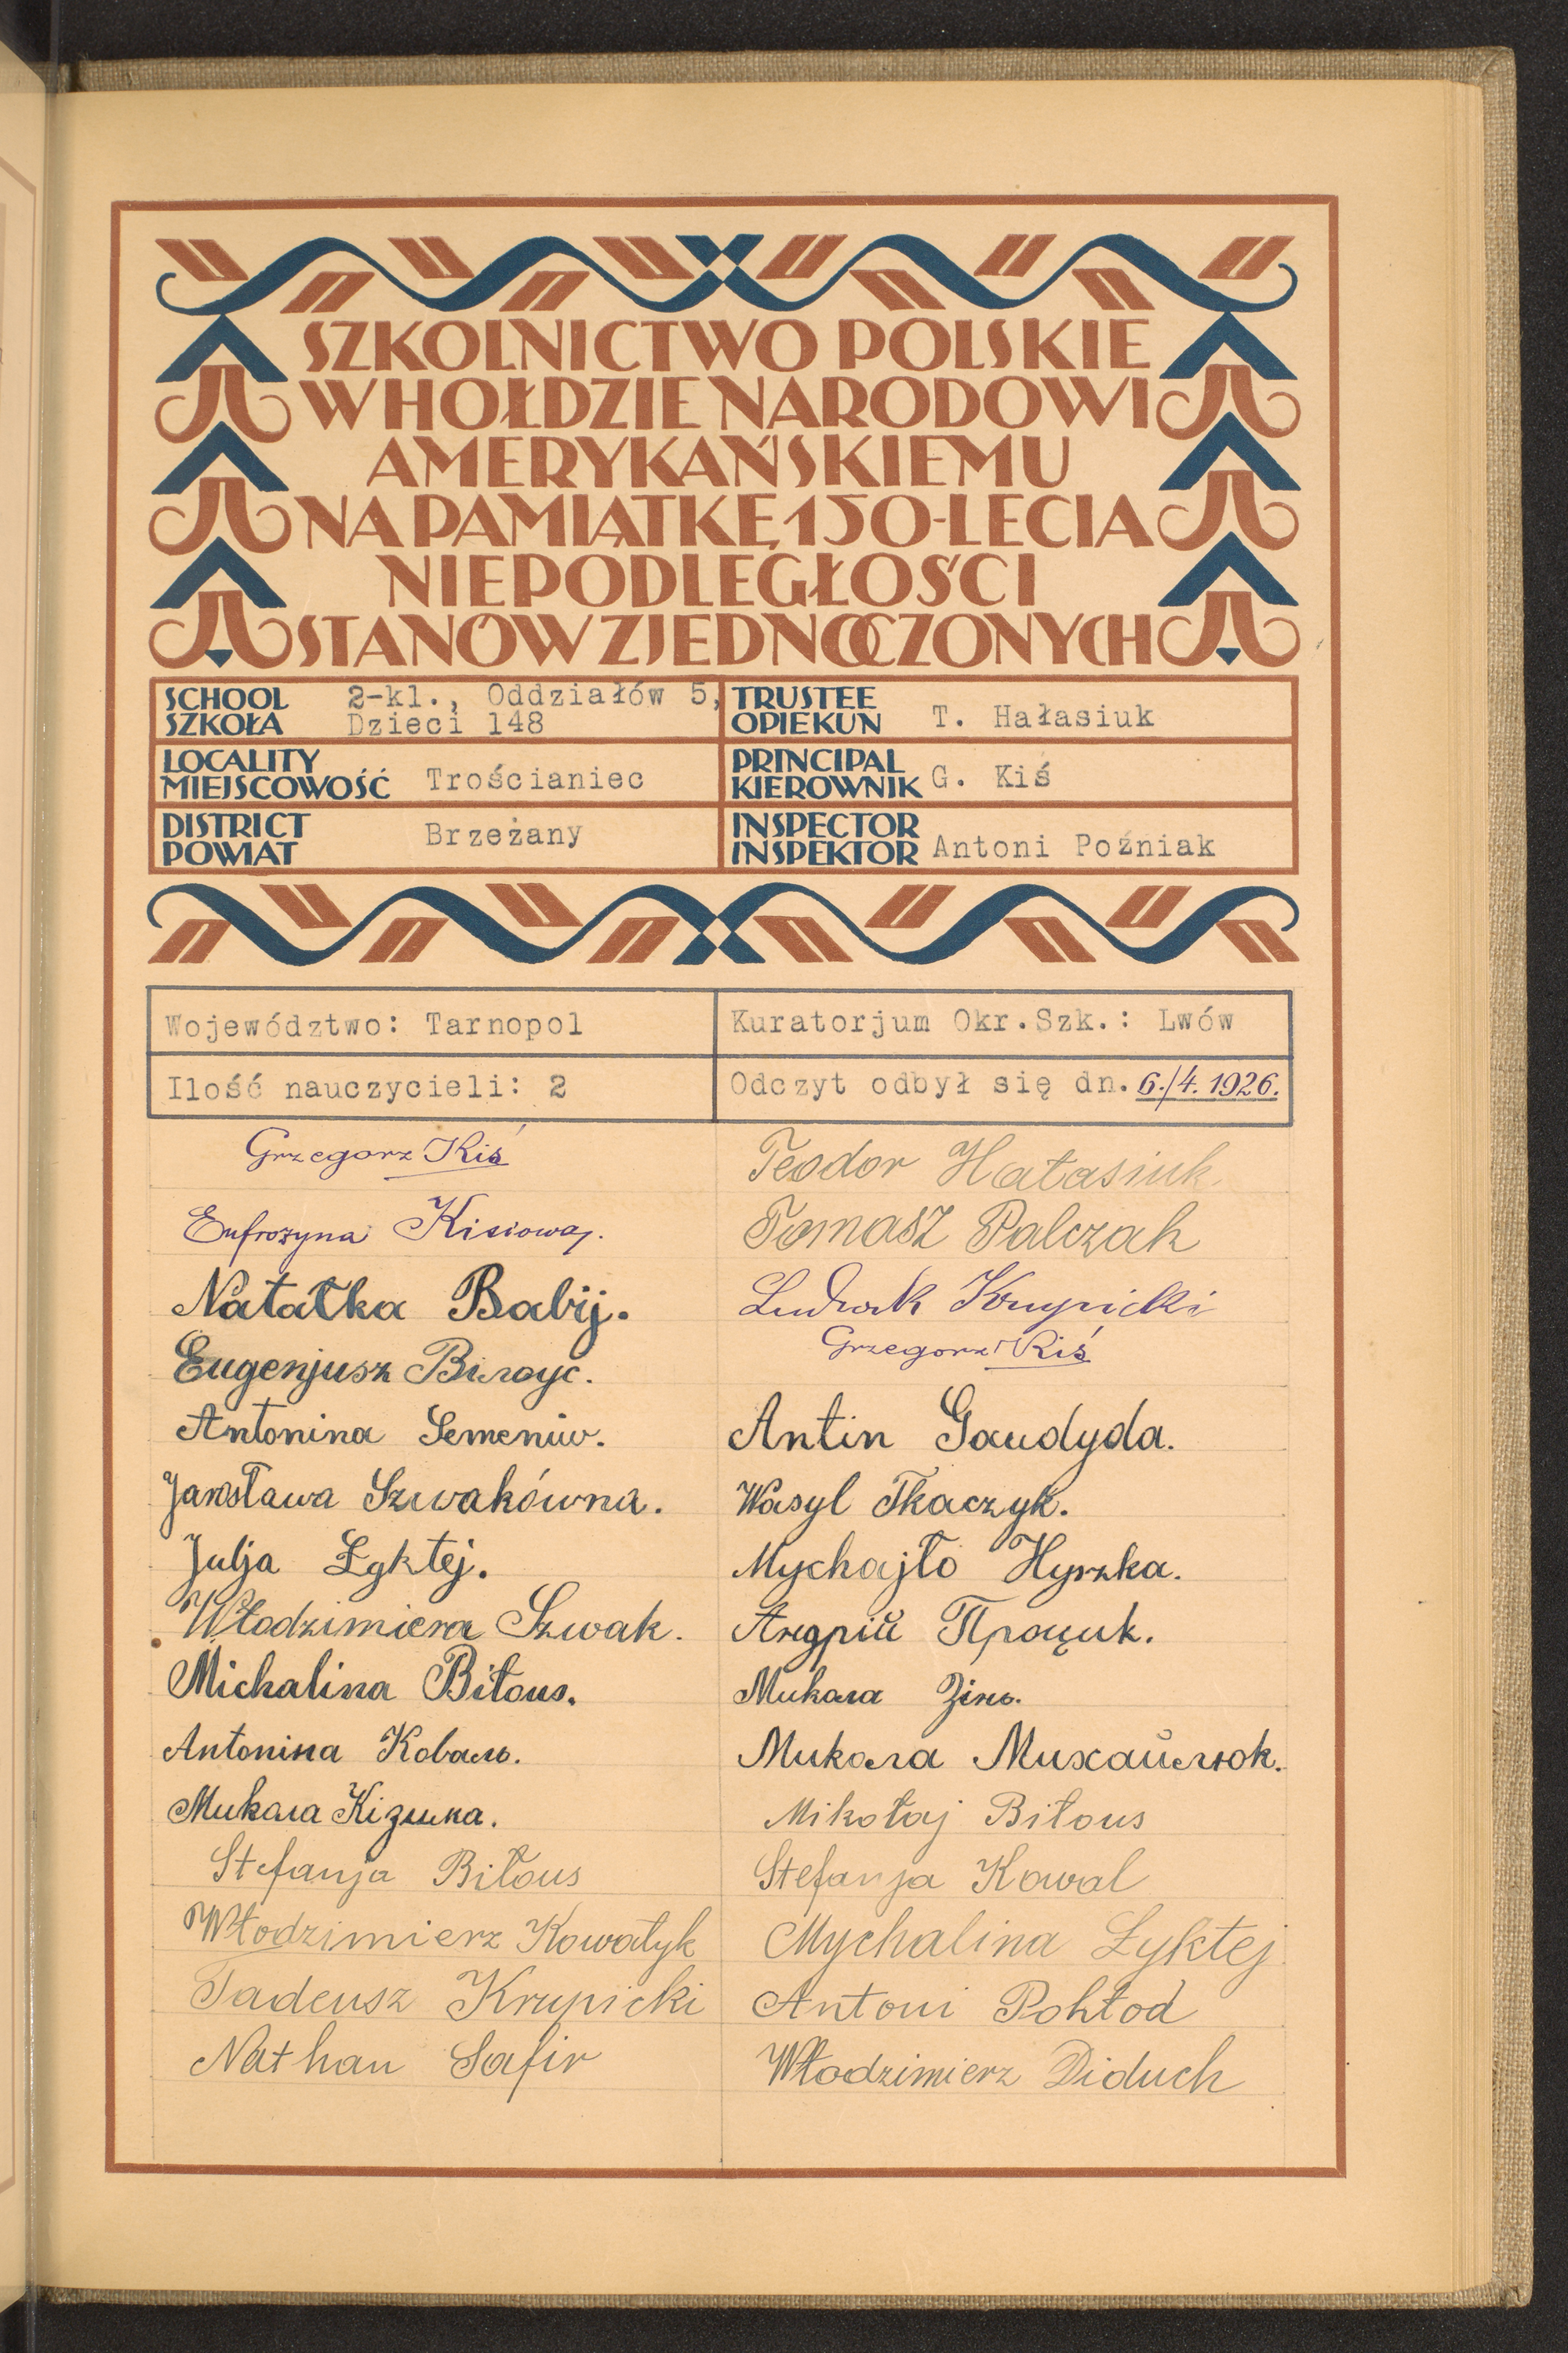 SZKOLNICTWO POLSKIE
W HOŁDZIE NARODOWI
AMERYKAŃSKIEMU
NA PAMIĄTKĘ 150-LECIA
NIEPODLEGŁOŚCI
STANÓW ZJEDNOCZONYCH
SCHOOL
SZKOŁA
2-kl., Oddziałów 5,
Dzieci 148
TRUSTEE
OPIEKUN
T. Hałasiuk
LOCALITY
MIEJSCOWOŚĆ
Trościaniec
PRINCIPAL
KIEROWNIK
G. Kiś
DISTRICT
POWIAT
Brzeżany
INSPECTOR
INSPEKTOR
Antoni Poźniak
Województwo: Tarnopol
Kuratorjum Okr.Szk.: Lwów
Ilość nauczycieli: 2
Odczyt odbył się dn. 6./4. 1926.
Grzegorz Kiś
Eufrozyna Kisiowa.
Natałka Babij.
Eugenjusz Білоус.
Antonina Semeniw.
Jarosława Szwakówna.
Julja Łyktej.
Włodzimiera Szwak.
Michalina Biłous.
Antonina Коваль.
Микола Кізима.
Stefanja Biłous
Włodzimierz Kowałyk
Tadeusz Krupicki
Nathan Safir
Teodor Hałasiuk.
Tomasz Palczak
Ludwik Krupicki
Grzegorz Kiś
Antin Gaudyda.
Wasyl Tkaczyk.
Mychajło Hyrzka.
Андрій Процик.
Микола Зінь.
Микола Михайлюк.
Mikołaj Biłous
Stefanja Kowal
Mychalina Łyktej
Antoni Pohłod
Włodzimierz Diduch